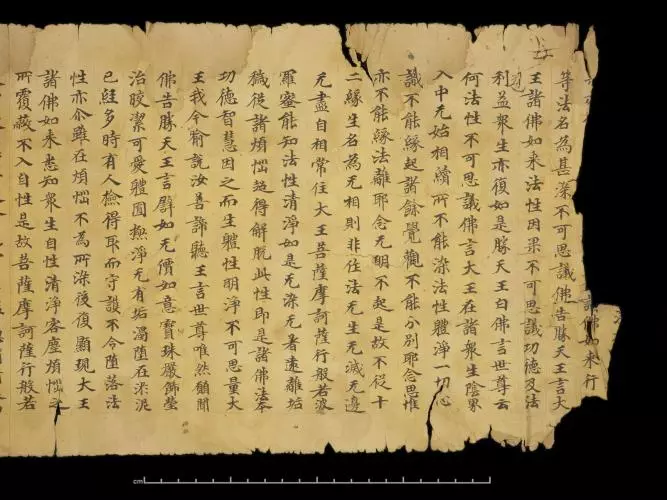 佛如来行
等法名為甚深不可思議佛告勝天王言大
王諸佛如来法性因果不可思議功德及法
利益衆生亦復如是勝天王白佛言世尊云
何法性不可思議佛言大王在諸衆生陰界
入中无始相續所不能染法性體淨一切心
識不能緣起諸餘覺觀不能分別耶念思惟
亦不能緣法離耶念无明不起是故不從十
二緣生名為无相則非作法无生无滅无邊
无盡自相常住大王菩薩摩訶薩行般若波
羅蜜能知法性清淨如是无染无著遠離垢
穢從諸煩惱超得解脫此性即是諸佛法本
功德智慧因之而生體性明淨不可思量大
王我今喻說汝善諦聽王言世尊唯然願聞
佛告勝天王言譬如无價如意寶珠嚴飾瑩
治皎潔可愛體圓極淨无有垢濁墮在染泥
已經多時有人撿得取而守護不令墮落法
性亦尒雖在煩惱不為所染後復顯現大王
諸佛如来悉知衆生自性清淨客塵煩惱之
所覆蔽不入自性是故菩薩摩訶薩行般若
cm